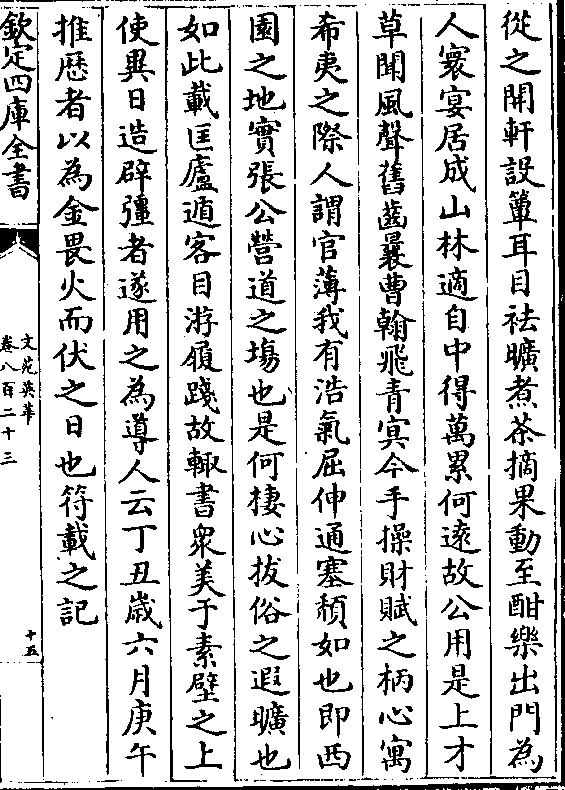 從之開軒設簟耳目祛曠煮茶摘果動至酣樂出門為
人寰宴居成山林適自中得萬累何遠故公用是上才
草聞風聲舊齒曩曹翰飛青㝠今手操財賦之柄心寓
希夷之際人謂官薄我有浩氣屈伸通塞頺如也即西
園之地實張公營道之塲也是何棲心拔俗之遐曠也
如此載匡廬遁客目游履踐故輙書衆美于素壁之上
使異日造辟彊者遂用之為導人云丁丑嵗六月庚午
推歴者以為金畏火而伏之日也符載之記
欽定四庫全書
文苑英華
卷八百二十三
十五